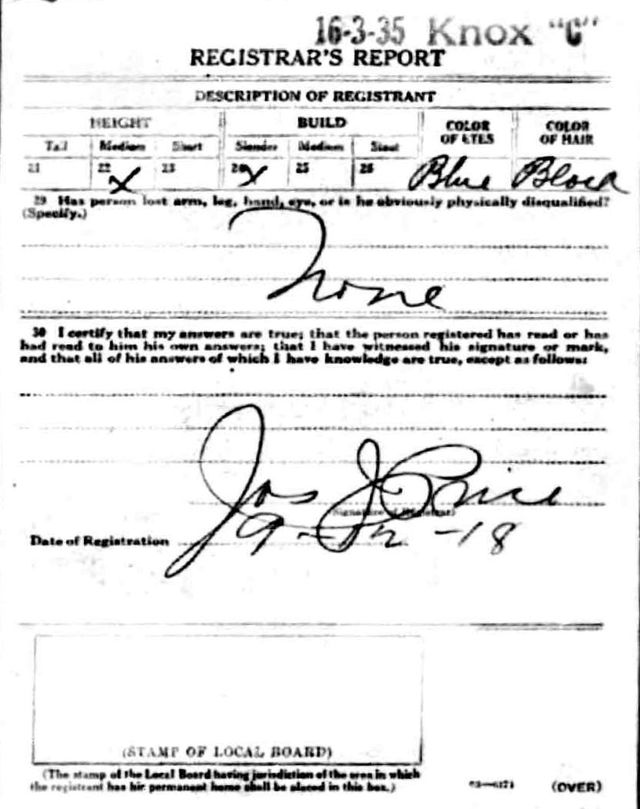 16-3-35 Knox "C"
REGISTRAR'S REPORT
DESCRIPTION OF REGISTRANT
HEIGHT BUILD COLOR OF EYES COLOR OF HAIR
Tall Medium Short Slender Medium Stout
21 22 X 23 24 X 25 26 Blue Blond
29 Has person lost arm, leg, hand, eye, or is he obviously physically disqualified?
(Specify.)
None
30 I certify that my answers are true; that the person registered has read or has
had read to him his own answers; that I have witnessed his signature or mark,
and that all of his answers of which I have knowledge are true, except as follows:
Jos J Price
(Signature of Registrar)
Date of Registration 9-12-18
(STAMP OF LOCAL BOARD)
(The stamp of the Local Board having jurisdiction of the area in which
the registrant has his permanent home shall be placed in this box.)
03—6171 (OVER)